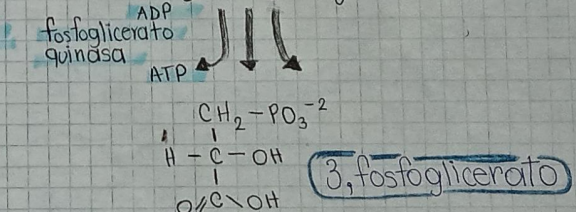 ADP
fosfoglicerato
quinasa
ATP
CH2-PO3-2
H-C-OH
3,fosfoglicerato
O//C\OH